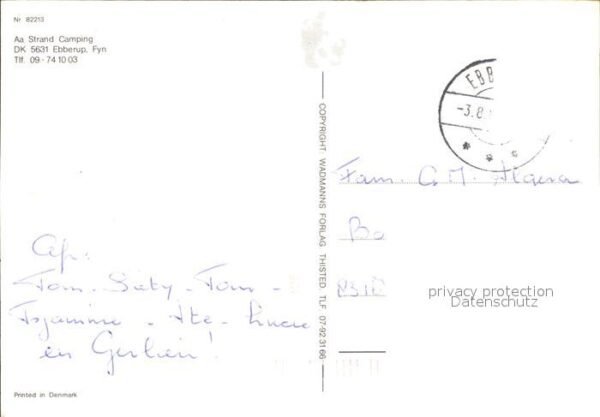 Nr 82213
Aa Strand Camping
DK 5631 Ebberup, Fyn
Tlf. 09 - 74 10 03
COPYRIGHT: WADMANNS FORLAG THISTED TLF 07-92 31 66
EBB
-3.8.
Fam. G. M. Algera
Bo
privacy protection
Datenschutz
Afz:
Tom - Siety - Tom -
en Gerlien!
Printed in Denmark